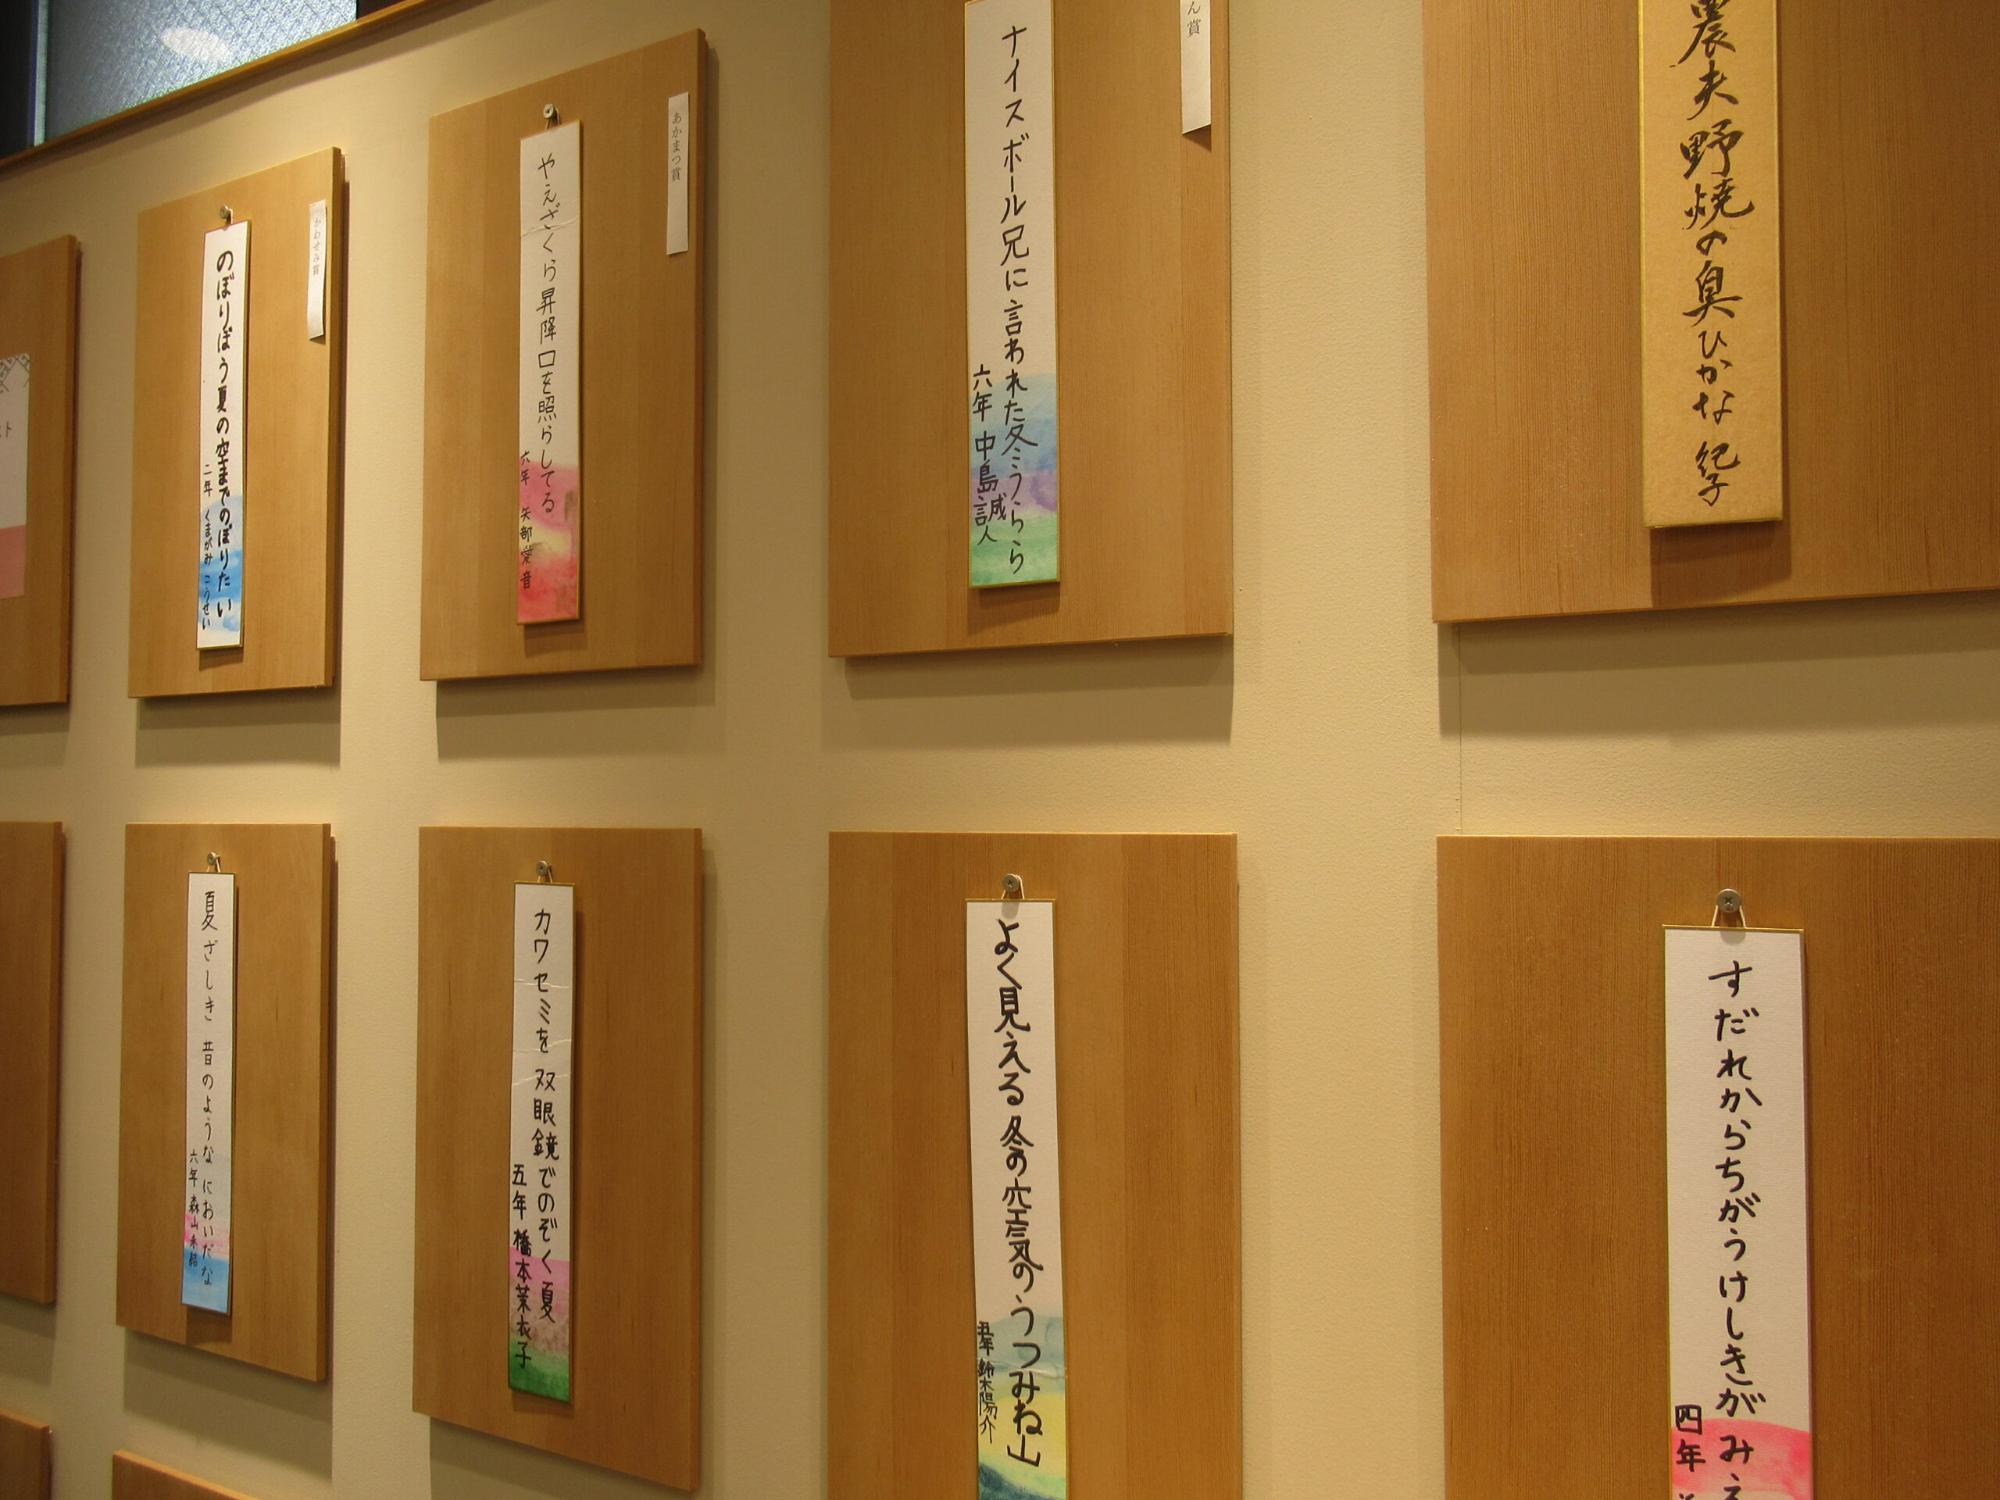 かわせみ賞
のぼりぼう夏の空までのぼりたい
二年 くまがみ こうせい
あかまつ賞
やえざくら昇降口を照らしてる
六年 矢部
音
ん賞
ナイスボール兄に言われた冬うらら
六年 中島誠人
農夫野焼の臭ひかな 紀子
夏ざしき 昔のような においだな
六年 森山
カワセミを 双眼鏡でのぞく夏
五年 橋本茉衣子
よく見える 冬の空気の うつみね山
五年 鈴木陽介
すだれからちがうけしきが みえ
四年
ト